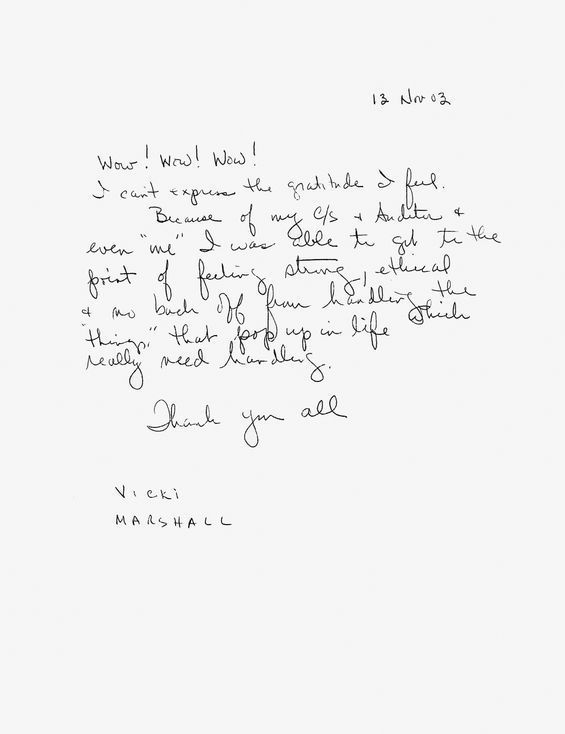 13 Nov 03
Wow! Wow! Wow!
I can't express the gratitude I feel.
Because of my C/S + Auditor +
even "me" I was able to get to the
point of feeling strong, ethical
+ no back off from handling the
"things" that pop up in life which
really need handling.
Thank you all
VICKI
MARSHALL